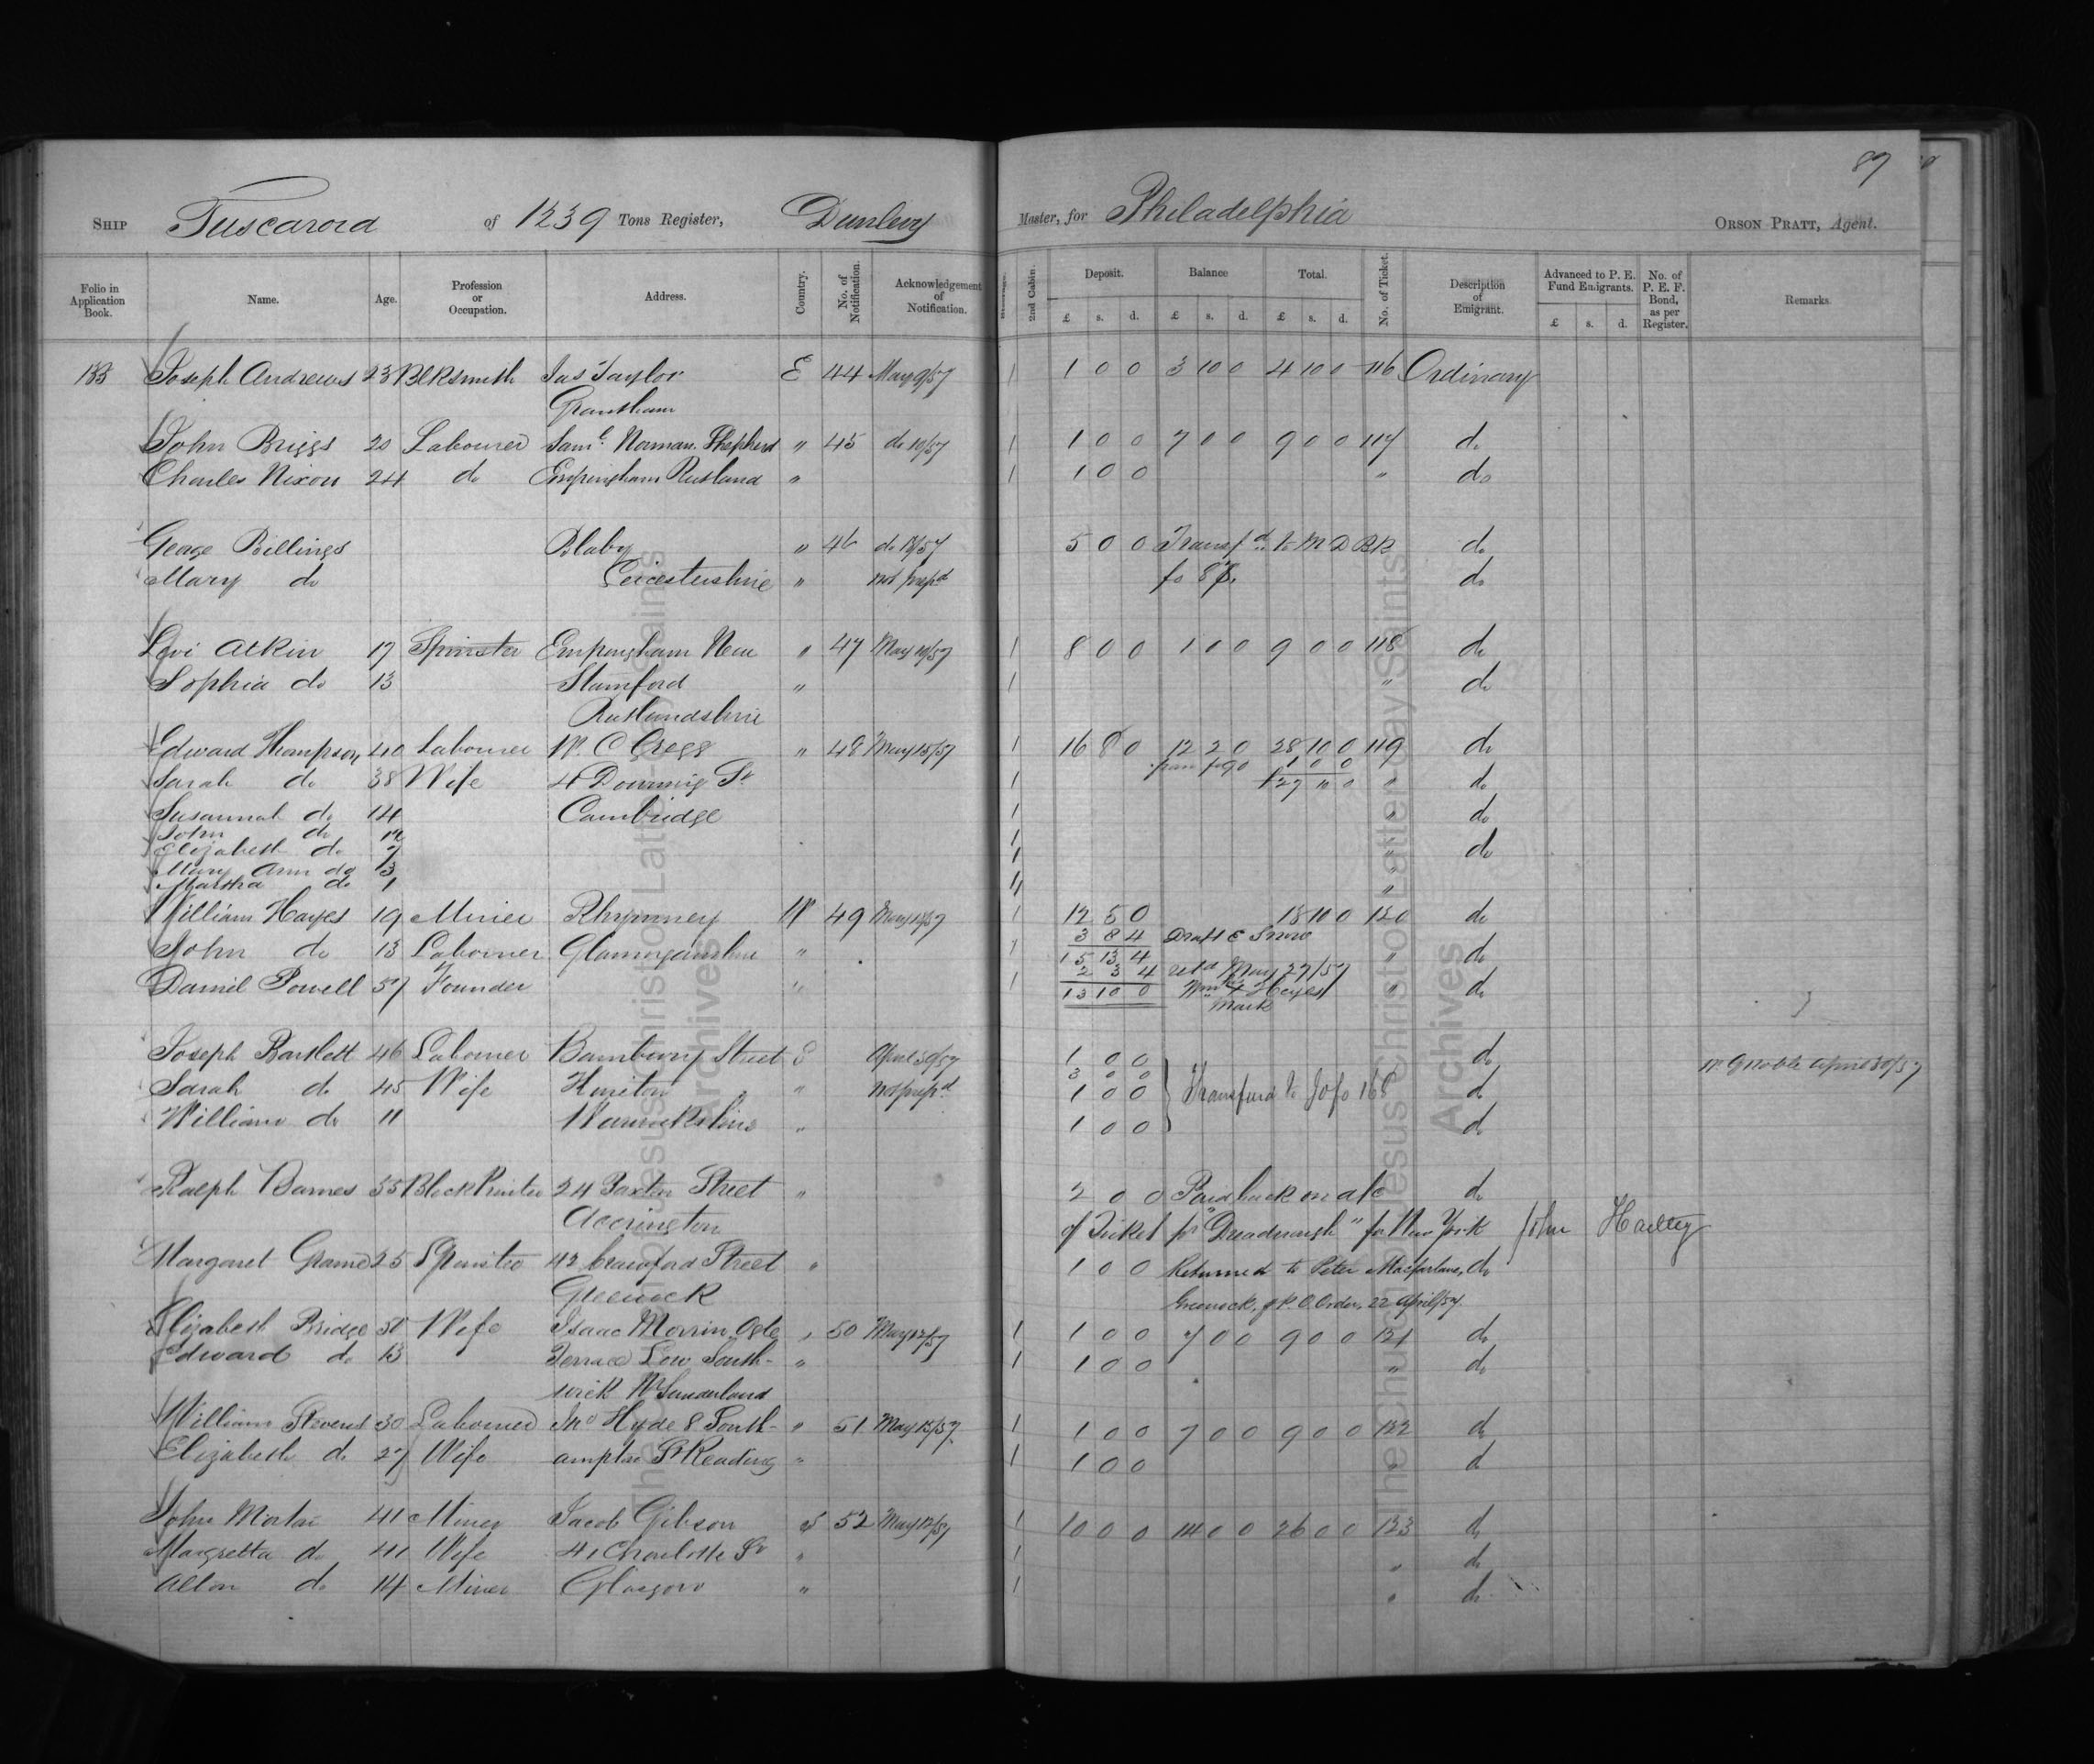 87
SHIP Tuscarora of 1239 Tons Register, Dunlevy Master, for Philadelphia ORSON PRATT, Agent.
Folio in Application Book. Name. Age. Profession or Occupation. Address. Country. No. of Notification. Acknowledgement of Notification. 2nd Cabin. Deposit. Balance Total. No. of Ticket. Description of Emigrant. Advanced to P. E. Fund Emigrants. No. of P. E. F. Bond, as per Register. Remarks.
£ s. d. £ s. d. £ s. d. £ s. d.
133 Joseph Andrews 23 Blksmith Jas Taylor E 44 May 9/57 1 1 0 0 3 10 0 4 10 0 116 Ordinary
Grantham
John Briggs 20 Labourer Saml. Norman. Shepherd " 45 do 19/57 1 1 0 0 7 0 0 9 0 0 117 do
Charles Nixon 24 do Empingham Rutland " 1 1 0 0 " do
George Billings Blaby " 46 do 18/57 5 0 0 Transfd. to M D BK do
Mary do Leicestershire " not prepd fo 88. do
Levi Atkin 17 Spinster Empingham New " 47 May 19/57 1 8 0 0 1 0 0 9 0 0 118 do
Sophia do 13 Stamford " 1 " do
Rutlandshire
Edward Thompson 40 Labourer W. C Gregg " 48 May 15/57 1 16 8 0 12 2 0 28 10 0 119 do
1 0 0
Sarah do 38 Wife 4 Downing St 1 £27 " 0 " do
Susannah do 14 Cambridge 1 " do
John do 12 1 "
Elizabeth do 7 1 " do
Mary Ann do 3
Martha do 1 "
William Hayes 19 Miner Rhymney W 49 May 12/57 1 12 5 0 18 10 0 120 do
3 8 4 Draft E Snow
John do 13 Labourer Glamorganshire " 1 15 13 4 " do
2 3 4 retd May 27/57
Daniel Powell 57 Founder " 1 13 10 0 Wm X Hayes " do
Mark
Joseph Bartlett 46 Labourer Bambury Street E April 30/57 1 0 0 do W. G Noble April 30/57
3 0 0
Sarah do 45 Wife Kineton " not prepd 1 0 0 Transferred to fo 168 do
William do 11 Warwickshire " 1 0 0 do
Ralph Barnes 35 Block Printer 24 Paxton Street " 2 0 0 Paid back on a/c do
Accrington of Ticket pr "Dreadnough" for New York John Hartley
Margaret Grame 25 Spinster 42 Crawford Street " 1 0 0 Returned to Peter Macfarlane, do
Greenock Greenock, p P. O. Order, 22 April/57.
Elizabeth Bridge 50 Wife Isaac Morrin, Ogle " 50 May 12/57 1 1 0 0 7 0 0 9 0 0 121 do
Edward do 13 Terrace Low South- " 1 1 0 0 " do
wick Nr Sunderland
William Stevens 30 Labourer Jno Hyde 8 South- " 51 May 15/57 1 1 0 0 7 0 0 9 0 0 122 do
Elizabeth do 27 Wife ampton St Reading " 1 1 0 0 " do
John Morton 41 Miner Jacob Gibson S 52 May 12/57 1 10 0 0 14 0 0 26 0 0 123 do
Margretta do 41 Wife 41 Charlotte St " 1 " do
Allon do 14 Miner Glasgow " 1 " do
The Church of Jesus Christ of Latter-day Saints
Archives
The Church of Jesus Christ of Latter-day Saints
Archives